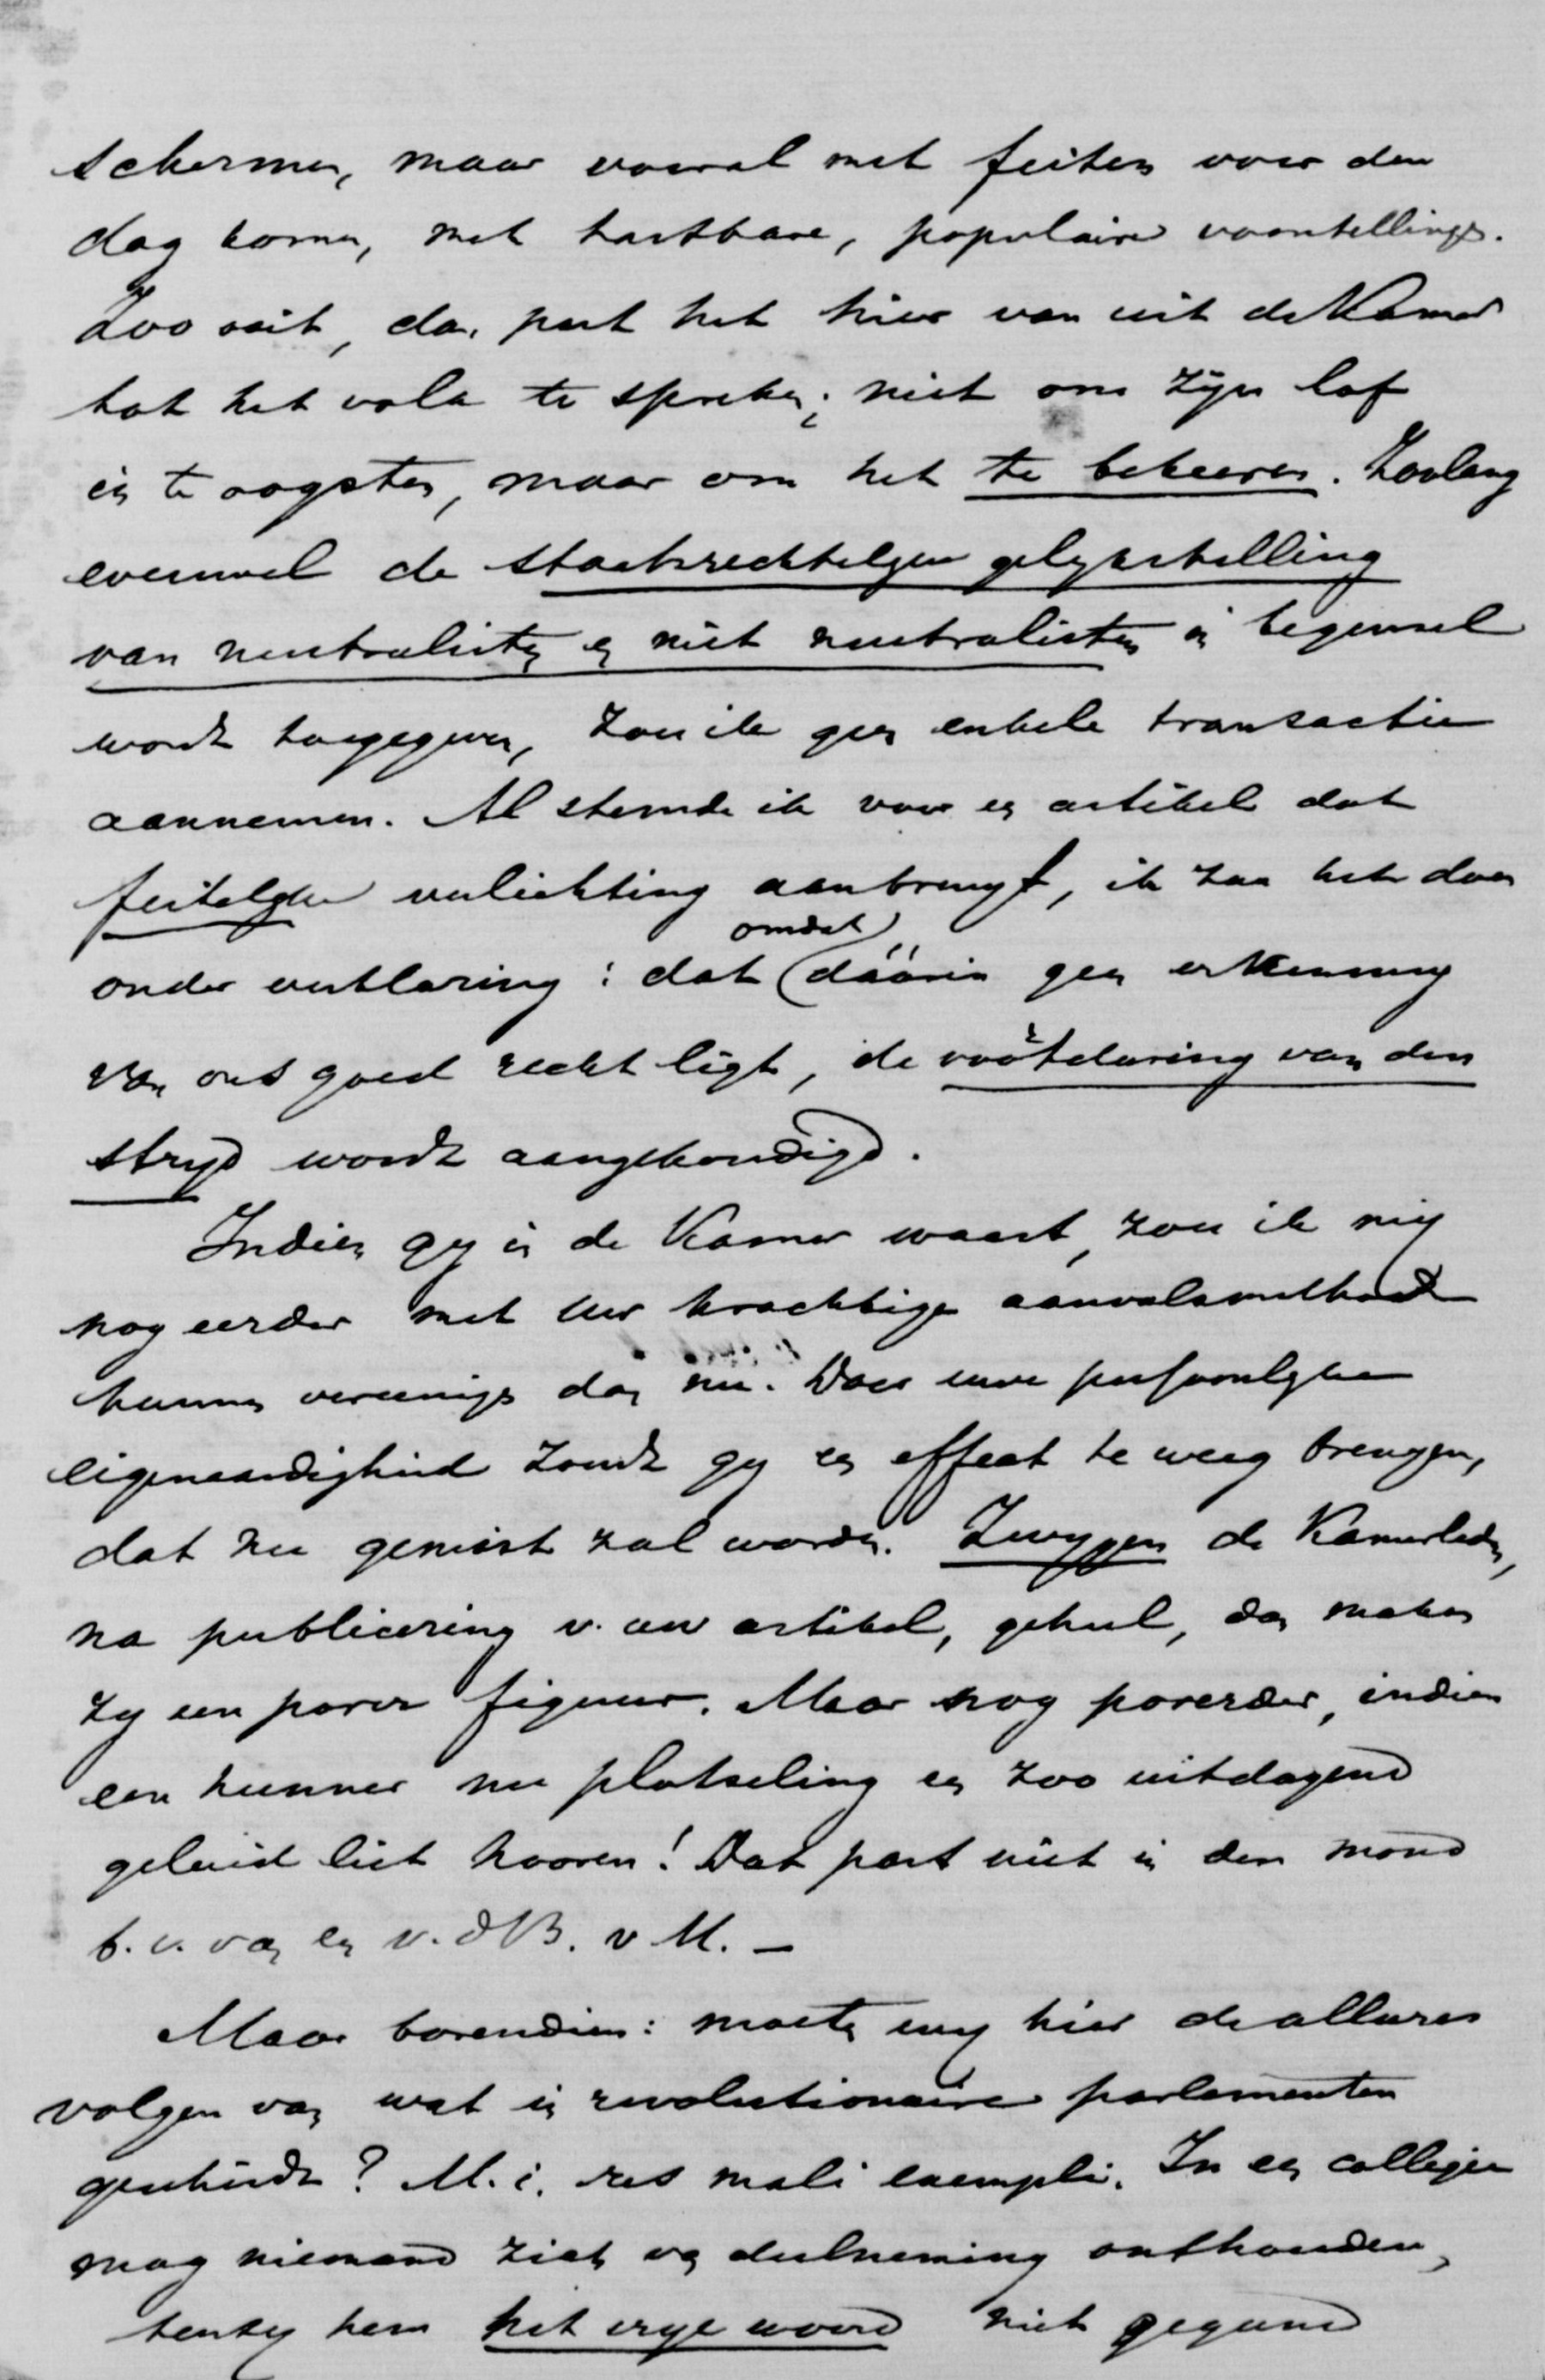 schermen, maar vooral met feiten voor den
dag komen, met tastbare, populaire voorstellingen.
Zoo ooit, dan past het hier van uit de Kamer
tot het volk te spreken; niet om zijn lof
in te oogsten, maar om het te bekeeren. Zoolang
evenwel de staatsrechtelijke gelijkstelling
van neutralisten en niet neutralisten in beginsel
wordt toegegeven, zou ik geen enkele transactie
aannemen. Al stemde ik voor een artikel dat
feitelijke verlichting aanbrengt, ik zou het doen
onder verklaring: dat (omdat dáárin geen erkenning
van ons goed recht ligt, de voortduring van den
strijd wordt aangekondigd.
Indien gij in de Kamer waart, zou ik mij
nog eerder met uw krachtige aanvalsmethode
kunnen vereenigen dan nu. Door uwe persoonlijke
eigenaardigheid zoudt gij een effect te weeg brengen,
dat nu gemist zal worden. Zwijgen de Kamerleden,
na publiceering v. uw artikel, geheel, dan maken
zij een pover figuur. Maar nog poverder, indien
een hunner nu plotseling een zoo uitdagend
geluid liet hooren! Dat past niet in den mond
b.v. van een v. d B. v M. —
Maar bovendien: moeten wij hier de allures
volgen van wat in revolutionaire parlementen
geschiedt? M. i. res mali exempli. In een collegie
mag niemand zich van deelneming onthouden,
tenzij hem het vrije woord niet gegund